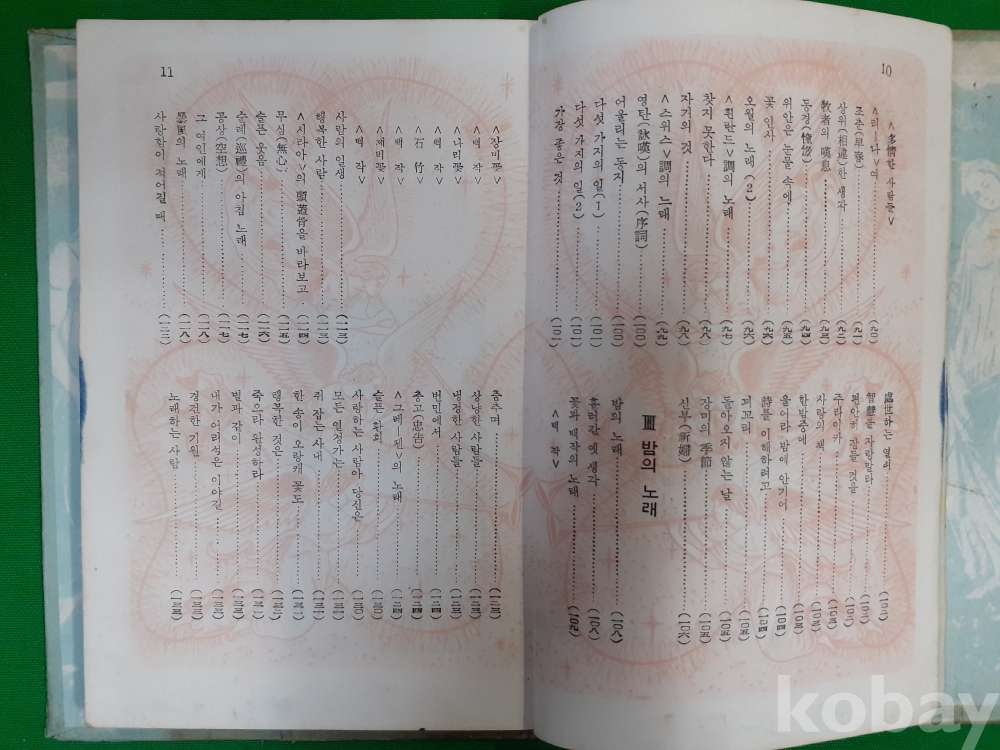 10
<多情한 사람들>
<리―나>여……(九〇)
조춘(早春)……(九一)
상위(相違)한 생각……(九二)
牧者의 嘆息……(九三)
동경(憧憬)……(九四)
위안은 눈물 속에……(九五)
꽃 인사……(九六)
오월의 노래 (2)……(九六)
<휜란드>調의 노래……(九七)
찾지 못한다……(九八)
자기의 것……(九八)
<스위스>調의 노래……(九九)
영탄(詠嘆)의 서사(序詞)……(一〇〇)
어울리는 동지……(一〇〇)
다섯 가지의 일(1)……(一〇一)
다섯 가지의 일(2)……(一〇一)
가장 좋은 것……(一〇二)
處世하는 열쇠……(一〇二)
智慧를 자랑말라……(一〇二)
편안히 잠들 것을……(一〇二)
주라이카……(一〇三)
사랑의 책……(一〇三)
한밤중에……(一〇三)
울어라 밤에 안기어……(一〇四)
詩를 이해하려고……(一〇四)
꾀꼬리……(一〇五)
돌아오지 않는 날……(一〇五)
장미의 季節……(一〇五)
신부(新婦)……(一〇六)
Ⅲ 밤의 노래
밤의 노래……(一〇八)
흘러간 옛 생각……(一〇八)
꽃과 백작의 노래……(一〇九)
<백 작>
11
<장미꽃>
<백 작>
<나리꽃>
<石 竹>
<백 작>
<제비꽃>
<백 작>
사람의 일생……(一一三)
행복한 사람……(一一三)
<시라아>의 頭蓋骨을 바라보고……(一一四)
무심(無心)……(一一五)
슬픈 웃음……(一一六)
순례(巡禮)의 아침 노래……(一一七)
공상(空想)……(一一七)
그 여인에게……(一一八)
暴風의 노래……(一一八)
사랑함이 적어질 때……(一二二)
춤추며……(一二三)
상냥한 사람들……(一二三)
냉정한 사람들……(一二三)
번민에서……(一二四)
충고(忠告)……(一二四)
<그레―첸>의 노래……(一二四)
슬픈 환희……(一三〇)
사랑하는 사람아 당신은……(一三〇)
모든 열정가는……(一三一)
쥐 잡는 사내……(一三一)
한 송이 오랑캐 꽃도……(一三二)
행복한 것은……(一三二)
죽으라 완성하라……(一三二)
별과 같이……(一三三)
내가 어리석은 이야긴……(一三三)
경건한 기원……(一三三)
노래하는 사람……(一三五)
kobay